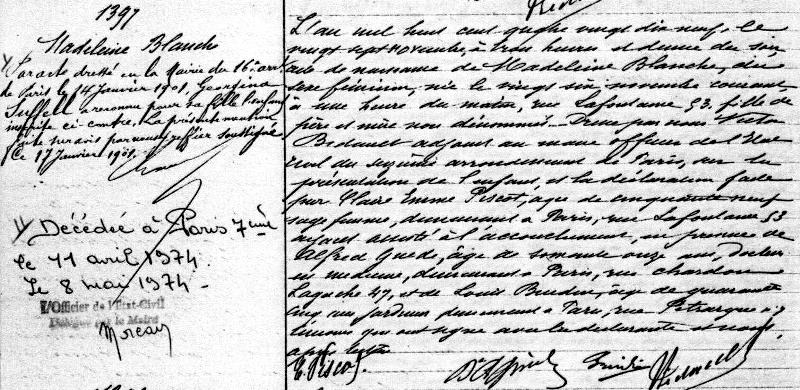 1397
Madeleine Blanche
Par acte dressé en la Mairie du 16e arrt
de Paris le 14 Janvier 1901, Georgina
Suffell a reconnu pour sa fille l'enfant
inscrite ci-contre. La présente mention
faite par nous greffier soussigné
Ce 17 Janvier 1901.
Décédée à Paris 7ème
le 11 avril 1974.
Le 8 mai 1974.
L'Officier de l'Etat-Civil
Délégué par le Maire
L'an mil huit cent quatre vingt dix neuf, le
vingt sept novembre, à trois heures et demie du soir
acte de naissance de Madeleine Blanche, du
sexe féminin, née le vingt six novembre courant
à une heure du matin, rue Lafontaine 53, fille de
père et mère non dénommés. Dressé par nous Victor
Bidault adjoint au maire officier de l'Etat
civil du seizième arrondissement de Paris, sur la
présentation de l'enfant, et la déclaration faite
par Claire Emme Piscot, âgée de cinquante neuf
sage femme, demeurant à Paris, rue Lafontaine 53
ayant assisté à l'accouchement, en présence de
Alfred Quede, âgé de soixante onze ans, Docteur
en médecine, demeurant à Paris, rue Chardon
Lagache 47, et de Louis Burdin, âgé de quarante
cinq ans jardinier demeurant à Paris, rue Pétrarque
témoins qui ont signé avec la déclarante et nous,
après lecture
E. Piscot